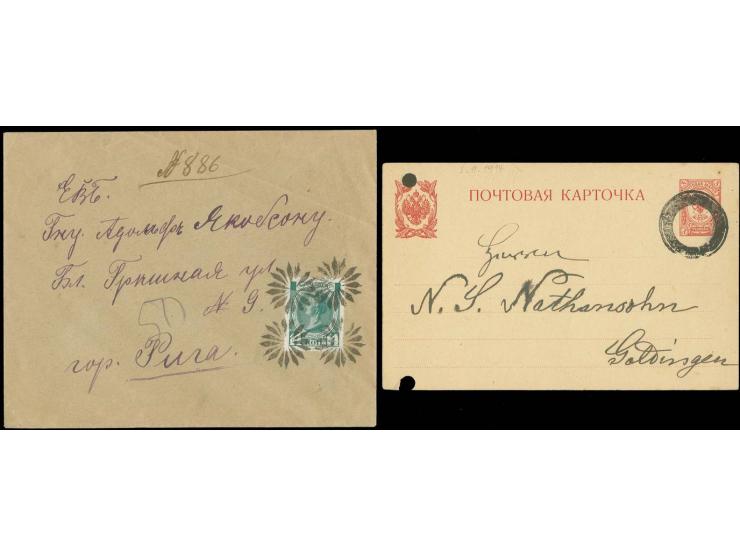 № 886
Евб.
Гну. Адольфъ Якобсону.
Бл. Грѣшная ул.
№ 9.
гор. Рига.
5.9.1914
ПОЧТОВАЯ КАРТОЧКА
Herren
N. S. Nathansohn
Goldingen